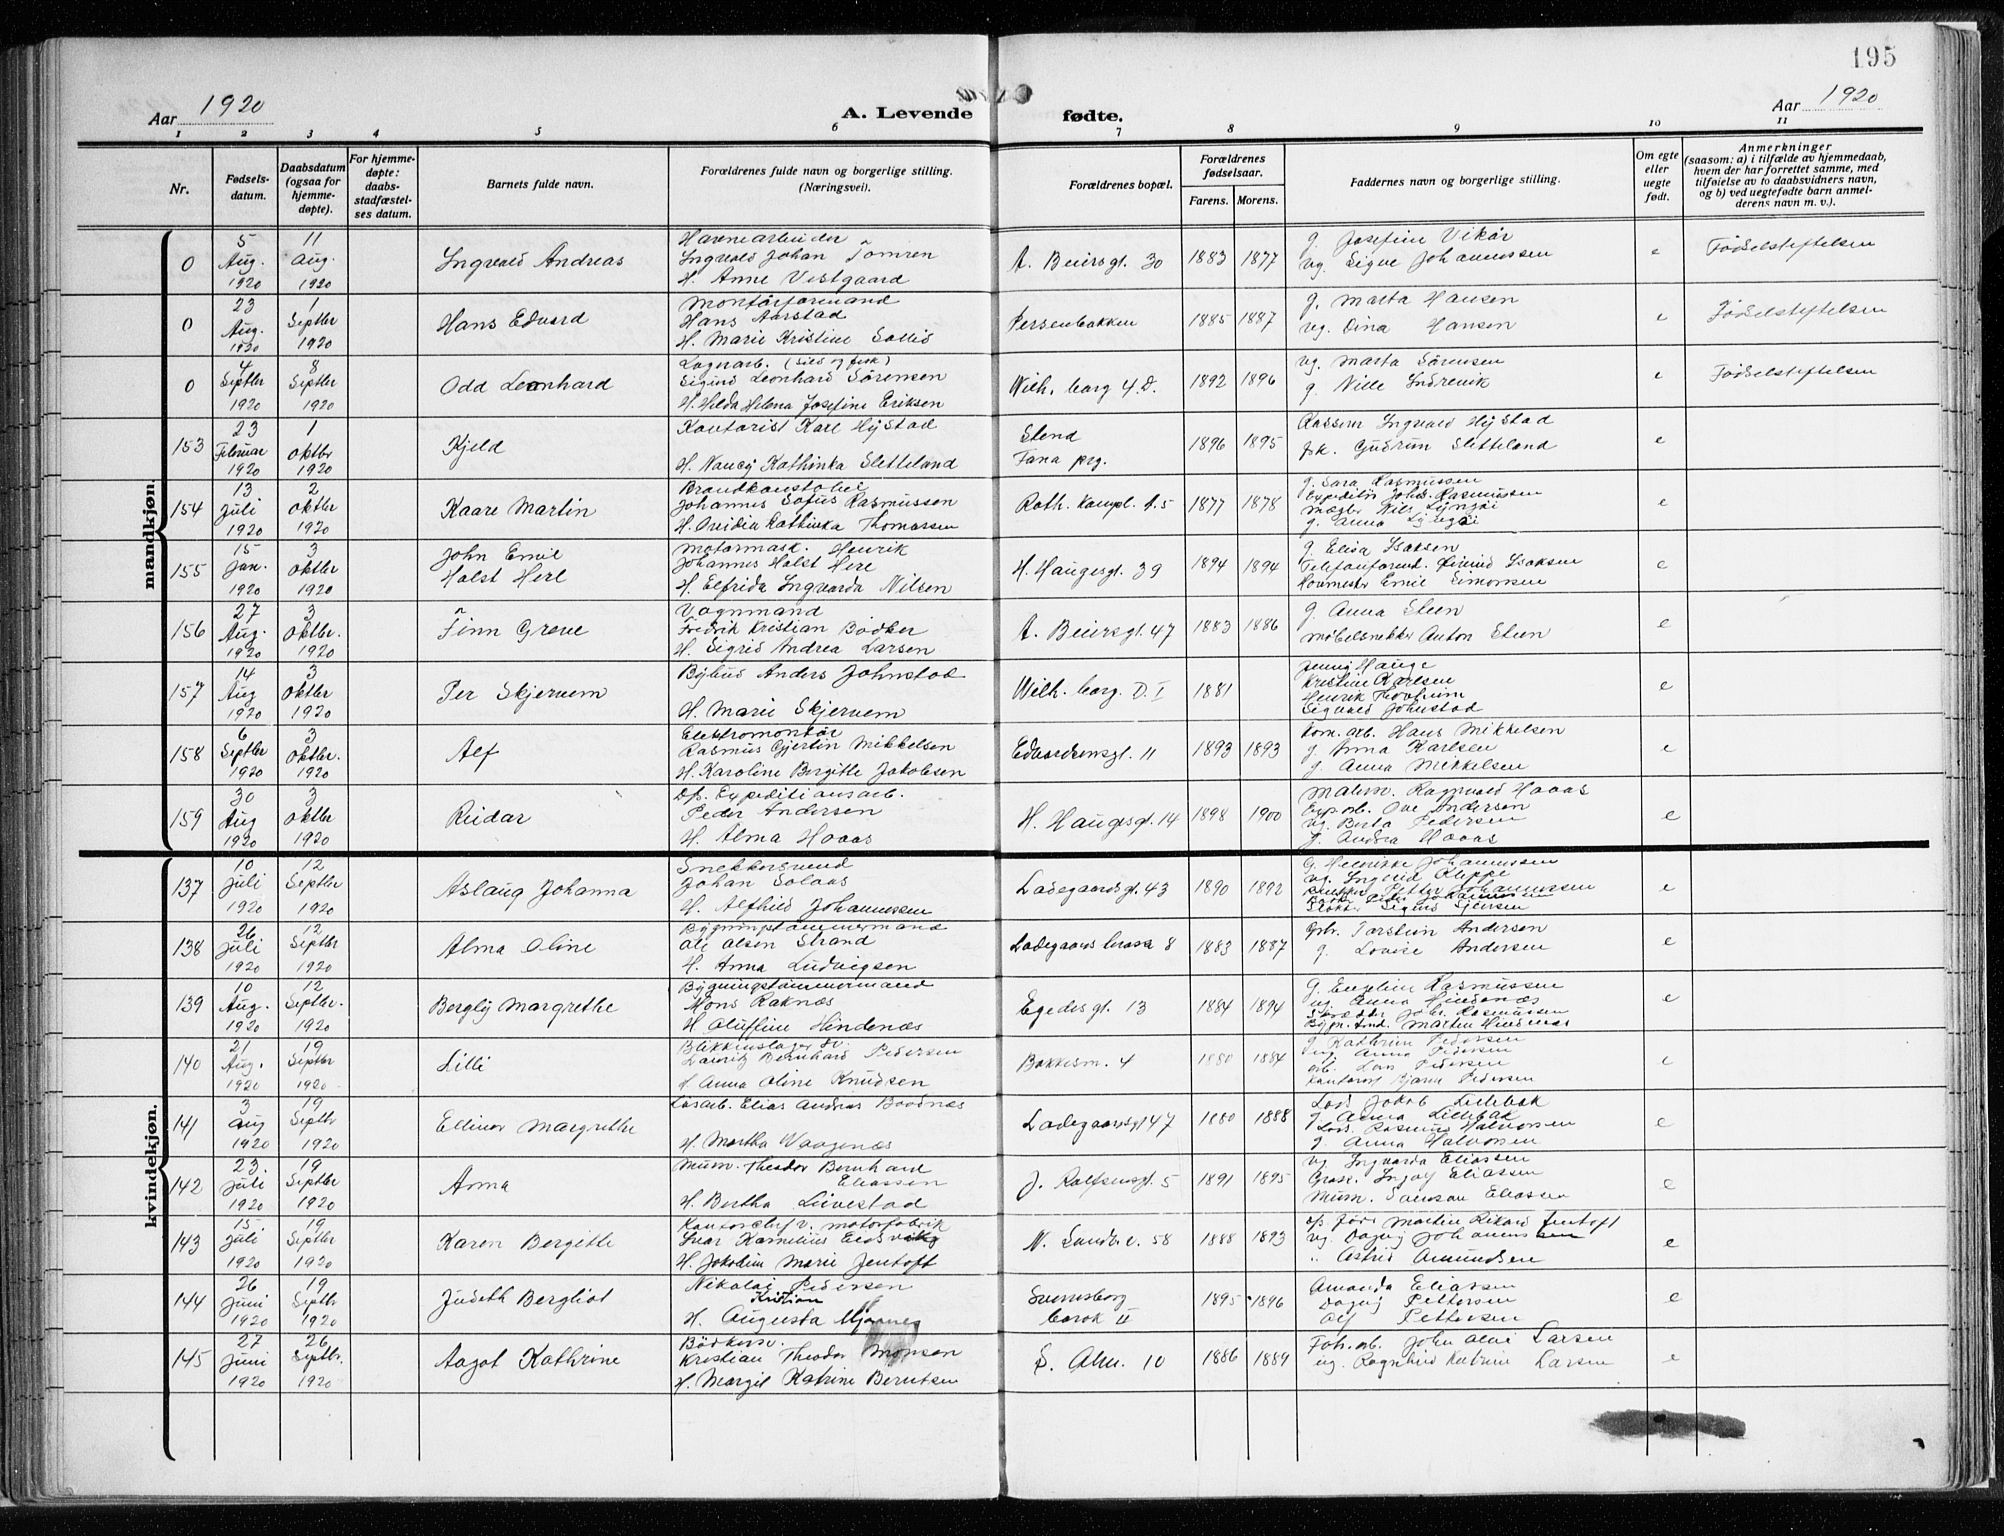 195
Aar 1920
A. Levende fødte.
Aar 1920
1 2 3 4 5 6 7 8 9 10 11
Nr.
Fødsels-
datum.
Daabsdatum
(ogsaa for
hjemme-
døpte).
For hjemme-
døpte:
daabs-
stadfæstel-
ses datum.
Barnets fulde navn.
Forældrenes fulde navn og borgerlige stilling.
(Næringsvei).
Forældrenes bopæl.
Forældrenes
fødselsaar.
Farens. Morens.
Faddernes navn og borgerlige stilling.
Om egte
eller
uegte
født.
Anmerkninger
(saasom: a) i tilfælde av hjemmedaab,
hvem der har forrettet samme, med
tilføielse av to daabsvidners navn,
og b) ved uegtefødte barn anmel-
derens navn m. v.).
mandkjøn.
0
5
Aug.
1920
11
Aug.
1920
Ingvald Andreas
Havnearbeider
Ingvald Johan Tomren
H. Anne Vestgaard
A. Beiersgt. 30
1883 1877
g. Josefine Vikør
ug. Signe Johannessen
e
Fødselstiftelsen
0
23
Aug.
1920
1
Septbr
1920
Hans Edvard
Montørformand
Hans Aarstad
H. Marie Kristine Sollid
Persenbakken
1885 1887
g. Marta Hansen
ug. Dina Hansen
e
Fødselstiftelsen
0
4
Septbr
1920
8
Septbr
1920
Odd Leonhard
Lagerarb. (sild og fisk)
Sigurd Leonhard Sørensen
H. Hilda Helena Josefine Eriksen
Wilh. borg 4. D.
1892 1896
ug. Marta Sørensen
g. Nille Indrevik
e
Fødselstiftelsen
153
23
Februar
1920
1
Oktbr
1920
Kjeld
Kontorist Karl Hystad
H. Nancy Kathinka Sletteland
Stend
Fana prg.
1896 1895
Kasserer Ingvald Hystad
frk. Gudrun Sletteland
e
154
13
Juli
1920
2
Oktbr
1920
Kaare Martin
Brandkonstabel
Johannes Sofus Rasmussen
H. Ovidia Kathinka Thomassen
Roth. kanpl. A. 5
1877 1878
g. Sara Rasmussen
Expeditør Johs. Rasmussen
Mægler Nils Lyngøi
g. Anna Lyngøi
e
155
15
Jan.
1920
3
Oktbr
1920
John Emil
Holst Herl
Motormask. Henrik
Johannes Holst Herl
H. Elfrida Ingvarda Nilsen
H. Haugesgt. 39
1894 1894
g. Elisa Isaksen
Telefonformd. Øivind Isaksen
Hovmester Emil Simonsen
e
156
27
Aug.
1920
3
Oktbr.
1920
Finn Greve
Vognmand
Fredrik Kristian Bødker
H. Sigrid Andrea Larsen
A. Beiersgt. 47
1883 1886
g. Anna Steen
Møbelsnekker Anton Steen
e
157
14
Aug
1920
3
Oktbr
1920
Per Skjervem
Bybud Anders Johnstad
H. Marie Skjervem
Wilh. borg. D. I
1881
Jenny Hauge
Kristine Karlsen
Henrik Hovheim
Sigvald Johnstad
e
158
6
Septbr
1920
3
Oktbr.
1920
Alf
Elektromontør
Rasmus Gjertin Mikkelsen
H. Karoline Bergitte Jakobsen
Edvardsensgt. 11
1893 1893
Kom. arb. Hans Mikkelsen
g. Anna Karlsen
g. Anna Mikkelsen
e
159
30
Aug
1920
3
Oktbr
1920
Reidar
Ds. Expeditionsarb.
Peder Andersen
H. Alma Haaas
H. Haugesgt. 14
1898 1900
Malerm. Ragnvald Haaas
Exp.arb. Ove Andersen
ug. Berta Pedersen
g. Andrea Haaas
e
kvindekjøn.
137
10
Juli
1920
12
Septbr
1920
Aslaug Johanna
Snekkersvend
Johan Solaas
H. Alfhild Johannessen
Ladegaardsgt. 43
1890 1892
G. Henrikke Johannessen
ug. Ingerid Kleppe
Petter Johannessen
e
138
26
Juli
1920
12
Septbr
1920
Alma Oline
Bygningstømmermand
Ole Olsen Strand
H. Anna Ludvigsen
1883 1887
Torstein Andersen
g. Lovise Andersen
e
139
10
Aug.
1920
12
Septbr.
1920
Bergly Margrethe
Bygningstømmermand
Mons Raknæs
H. Oluffine Hindenæs
Egedesgt. 13
1884 1894
G. Engeline Rasmussen
ug. Anna Hindenæs
Skrædder Johs. Rasmussen
Martin Hindenæs
e
140
21
Aug.
1920
19
Septbr
1920
Lilli
Blikkenslager sv.
Lauritz Bernhard Pedersen
H. Anna Oline Knudsen
Bakkesm. 4
1880 1884
g. Kathrine Pedersen
ug. Anna Pedersen
arb. Lars Pedersen
Kontorist Bjarne Pedersen
e
141
3
Aug
1920
19
Septbr
1920
Ellinor Margrethe
Løsarb. Elias Andreas Boodnæs
H. Martha Waagenæs
Ladegaardsgt 47
1880 1888
Lods Jakob Lillebak
g. Anna Lillebak
Lods. Rasmus Halvorsen
g. Anna Halvorsen
e
142
23.
Juli
1920
19
Septbr
1920
Anna
Murm. Theodor Bernhard
Eliassen
H. Bertha Leivestad
J. Rolfsensgt. 5
1891 1895
ug Ingvarda Eliassen
Ingolf Eliassen
Murm. Samson Eliassen
e
143
15
Juli
1920
19
Septbr
1920
Karen Bergitte
Kontorchef v. motorfabrik
Ivar Kornelius Eidsvik
H. Jakobine Marie Jentoft
N. Sandv. v. 58
1888 1893
Martin Rikard Jentoft
ug. Dagny Johannessen
" Astrid Amundsen
e
144
26
Juni
1920
19
Septbr
1920
Judith Bergliot
Nikolai Pedersen
Kristian
H. Augusta Mjaanes
Sverresborg
barak II
1895 1896
Amanda Eliassen
Dagny Pettersen
Alf Pettersen
e
145
27
Juni
1920
26
Septbr.
1920
Aagot Kathrine
Bødkersv.
Kristian Theodor Monsen
H. Margit Katrine Berntsen
S. Alm. 10
1886 1889
Fab. arb. John Olai Larsen
ug. Ragnhild Katrine Larsen
e